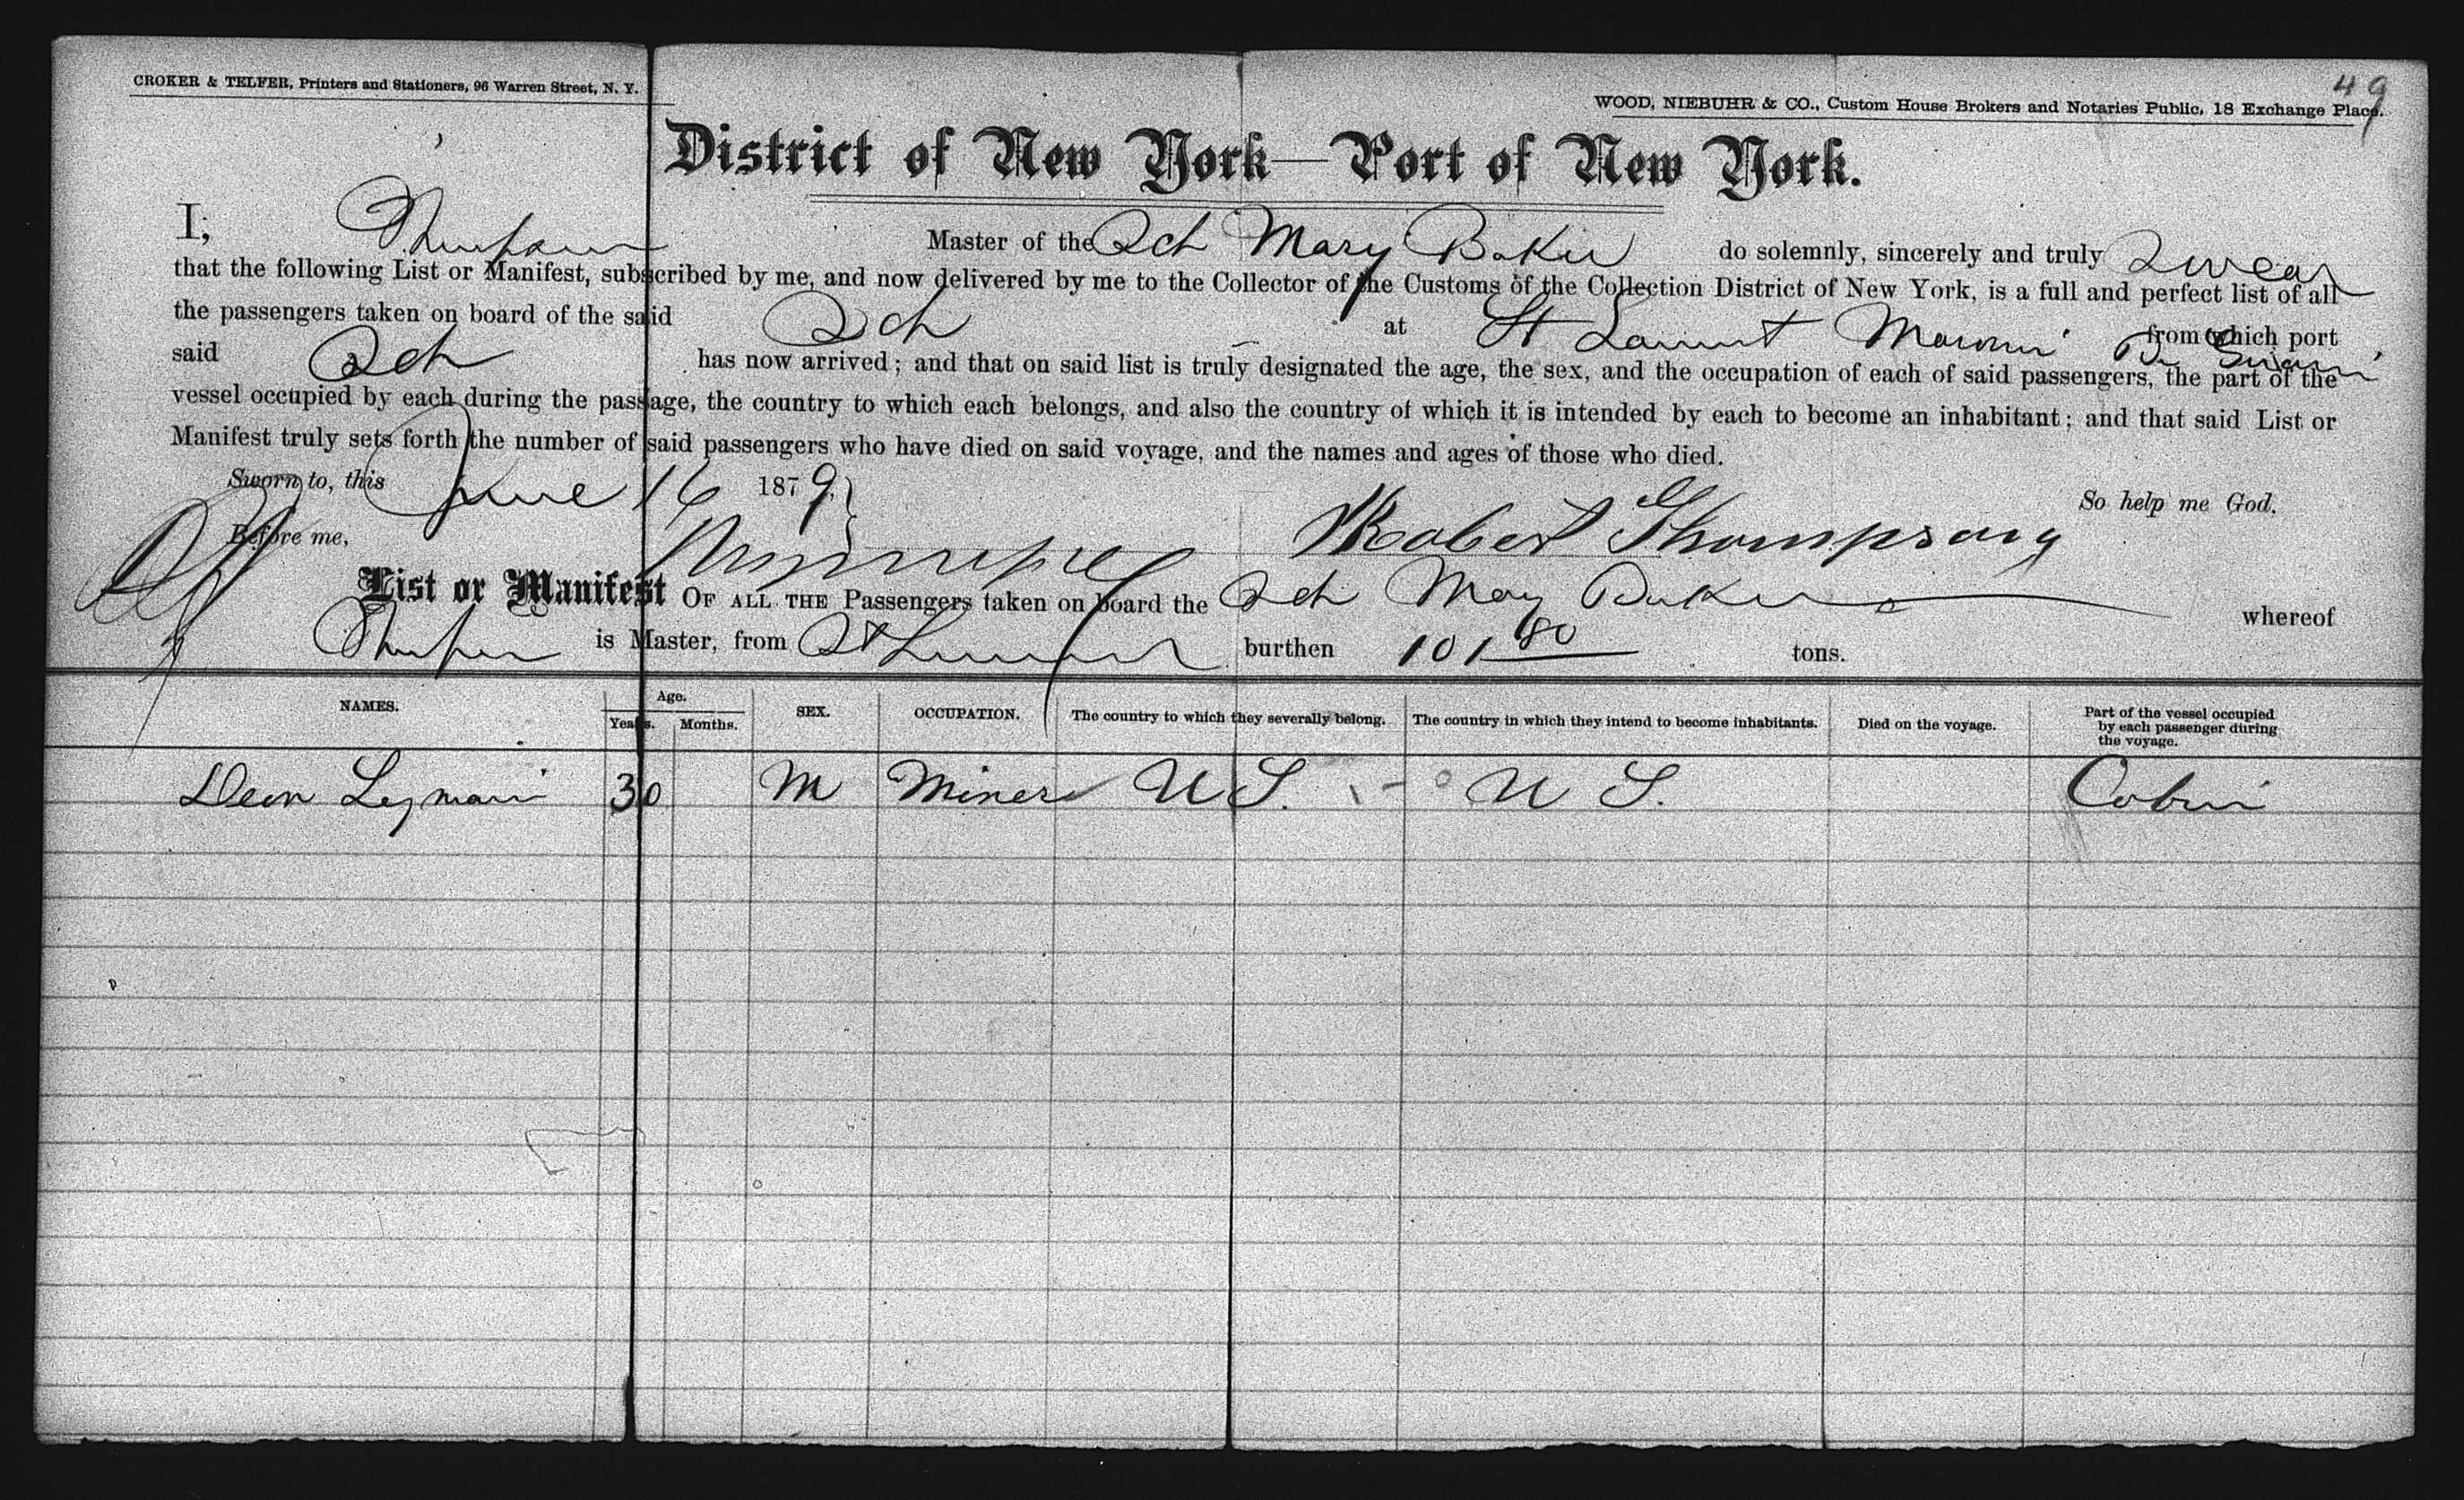 49
CROKER & TELFER, Printers and Stationers, 96 Warren Street, N. Y.
WOOD, NIEBUHR & CO., Custom House Brokers and Notaries Public, 18 Exchange Place.
District of New York—Port of New York.
I, Thompson Master of the Sch Mary Baker do solemnly, sincerely and truly Swear
that the following List or Manifest, subscribed by me, and now delivered by me to the Collector of the Customs of the Collection District of New York, is a full and perfect list of all
the passengers taken on board of the said Sch at St Laurent Maroni from which port
said Sch has now arrived; and that on said list is truly designated the age, the sex, and the occupation of each of said passengers, the part of the
vessel occupied by each during the passage, the country to which each belongs, and also the country of which it is intended by each to become an inhabitant; and that said List or
Manifest truly sets forth the number of said passengers who have died on said voyage, and the names and ages of those who died.
Sworn to, this June 16 1879, So help me God.
Before me, Robert Thompson
List or Manifest OF ALL THE Passengers taken on board the Sch Mary Baker whereof
is Master, from St Laurent burthen 101 80 tons.
NAMES. Age. Years. Months. SEX. OCCUPATION. The country to which they severally belong. The country in which they intend to become inhabitants. Died on the voyage. Part of the vessel occupied by each passenger during the voyage.
Leon Legman 30 M Miner U S. U S. Cabin